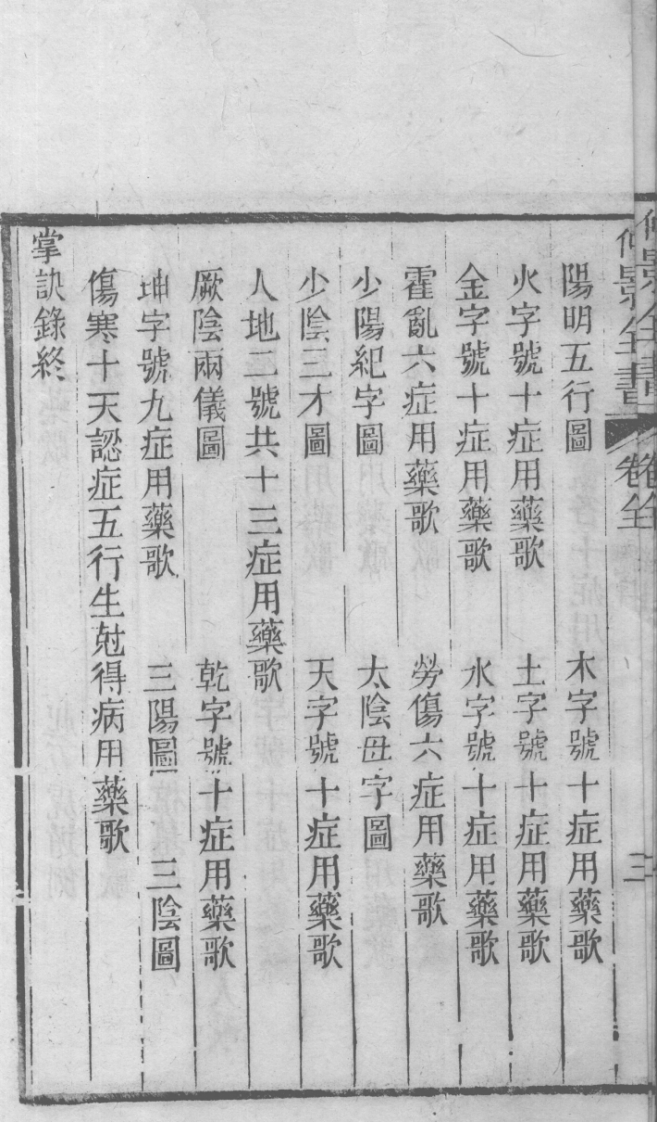 仲景全書 卷全 三
陽明五行圖 木字號十症用藥歌
火字號十症用藥歌 土字號十症用藥歌
金字號十症用藥歌 水字號十症用藥歌
霍亂六症用藥歌 勞傷六症用藥歌
少陽紀字圖 太陰毋字圖
少陰三才圖 天字號十症用藥歌
人地二號共十三症用藥歌
厥陰兩儀圖 乾字號十症用藥歌
坤字號九症用藥歌 三陽圖 三陰圖
傷寒十天認症五行生尅得病用藥歌
掌訣錄終